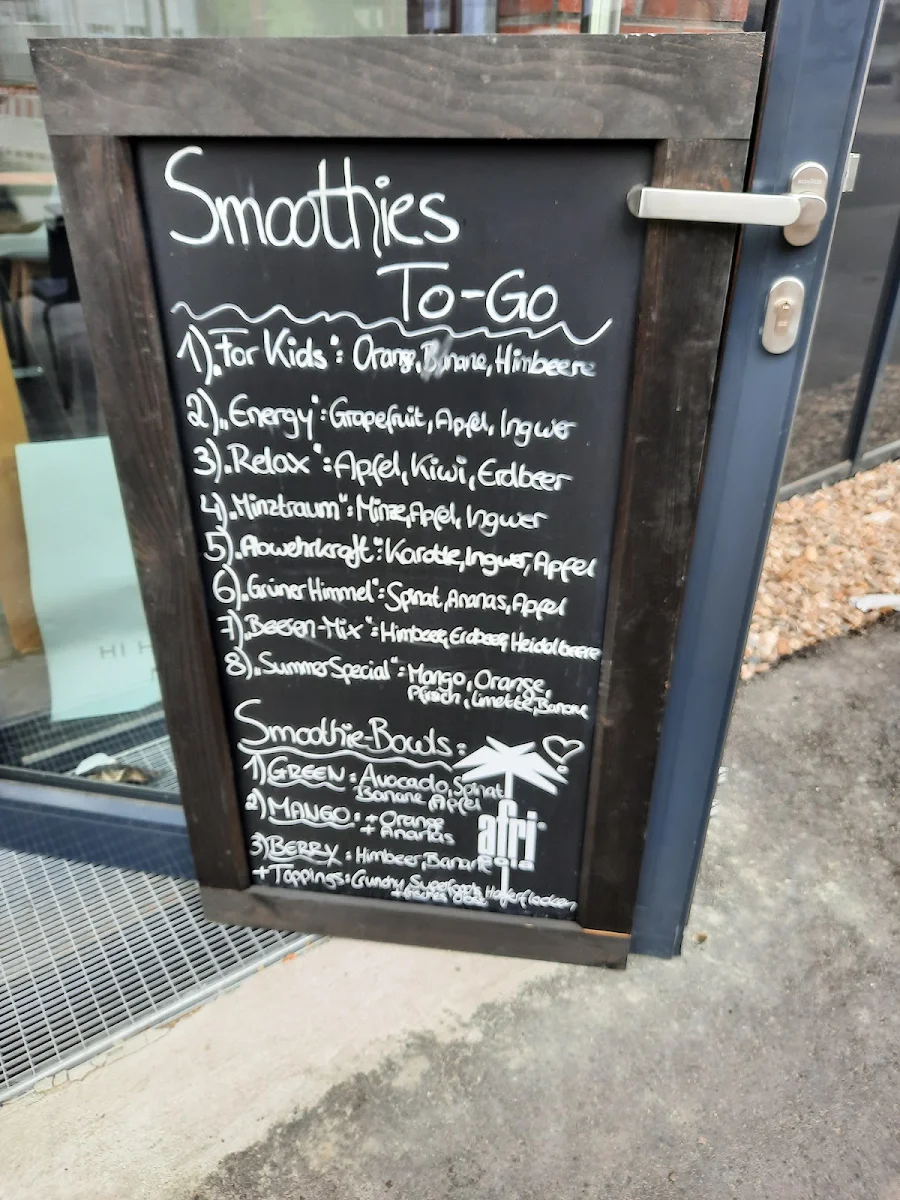 Smoothies
To-Go
1) „For Kids“: Orange, Banane, Himbeere
2) „Energy“: Grapefruit, Apfel, Ingwer
3) „Relax“: Apfel, Kiwi, Erdbeer
4) „Minztraum“: Minze, Apfel, Ingwer
5) „Abwehrkraft“: Karotte, Ingwer, Apfel
6) „Grüner Himmel“: Spinat, Ananas, Apfel
7) „Beeren-Mix“: Himbeer, Erdbeer, Heidelbeere
8) „Summer Special“: Mango, Orange,
Pfirsich, Limette, Banane
Smoothie-Bowls:
1) GREEN: Avocado, Spinat
Banane Apfel
2) MANGO: + Orange
+ Ananas
3) BERRY: Himbeer, Banane
+ Toppings: Crunchy, Superfoods Haferflocken
afri
cola
HI